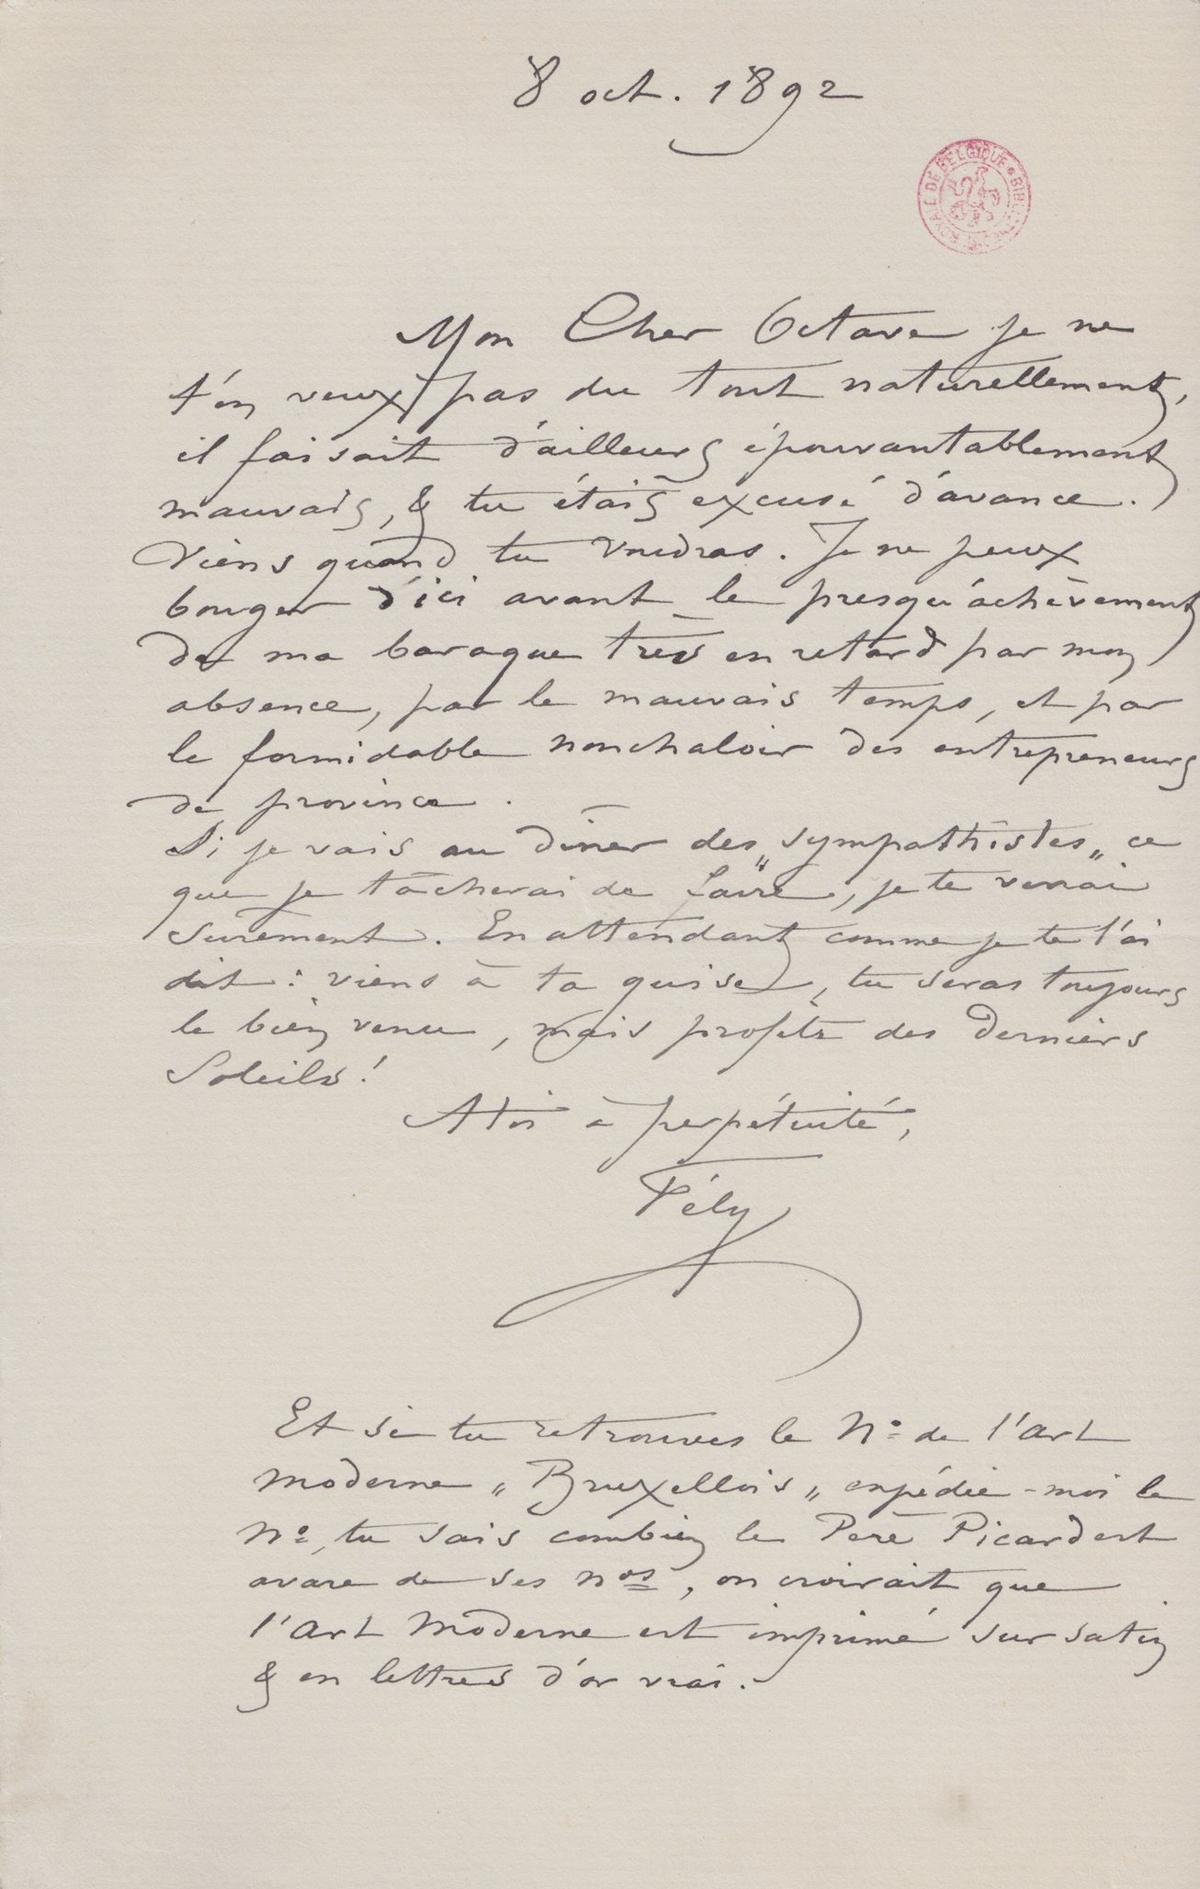 8 oct. 1892
ROYALE DE BELGIQUE * BIBLIOTHEQUE
Mon Cher Octave je ne
t'en veux pas du tout naturellement,
il faisait d'ailleurs épouvantablement
mauvais, & tu étais excusé d'avance.
Viens quand tu voudras. Je ne peux
bouger d'ici avant le presqu'achèvement
de ma baraque très en retard par mon
absence, par le mauvais temps, et par
le formidable nonchaloir des entrepreneurs
de province.
Si je vais au dîner des „sympathistes„ ce
que je tâcherai de faire, je te verrai
surement. En attendant comme je te l'ai
dit : viens à ta guise, tu seras toujours
le bien venu, mais profite des derniers
Soleils !
A toi à perpétuité,
Fély
Et si tu retrouves le No de l'art
moderne „Bruxellois„ expédie-moi le
No, tu sais combien le Père Picard est
avare de ses nos, on croirait que
l'Art Moderne est imprimé sur satin
& en lettres d'or vrai.